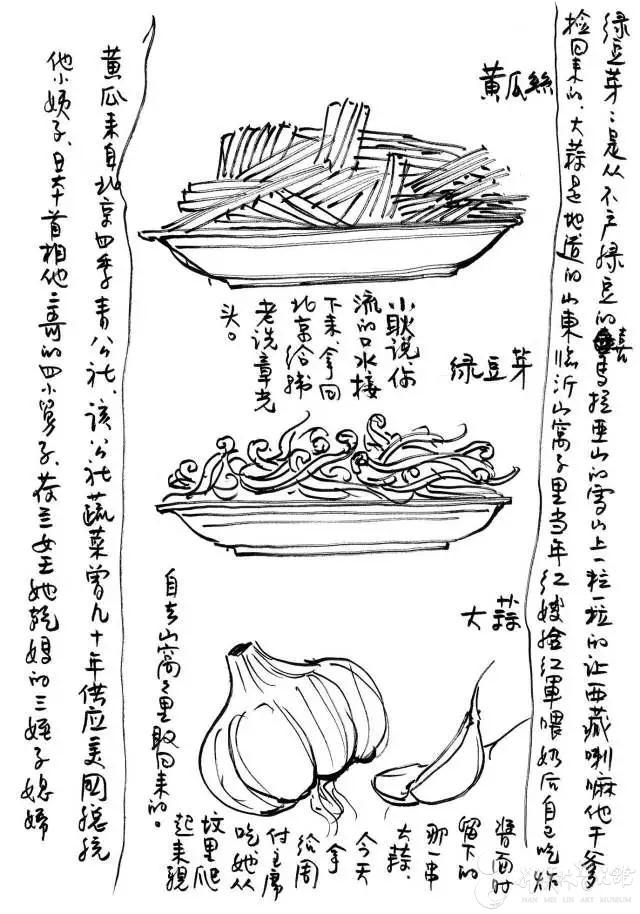 绿豆芽:是从不产绿豆的喜马拉亚山的雪山上一粒一粒的让西藏喇嘛他干爹
捡回来的、大蒜是地道的山東临沂山窝子里当年红嫂给红軍喂奶后自己吃炸
酱面时
留下的
那一串
大蒜、
今天
拿
给周
付主席
吃她从
坟里爬
起来親
自去山窝子里取回来的。
黄瓜絲
小耿说,你
流的口水接
下来,拿回
北京给韩
老洗章光
头。
绿豆芽
大蒜
黄瓜来自北京四季青公社、该公社蔬菜曾九十年供应美國總统
他小姨子、日本首相他三哥的四小舅子、荷兰女王她乾媽的三姪子媳婦